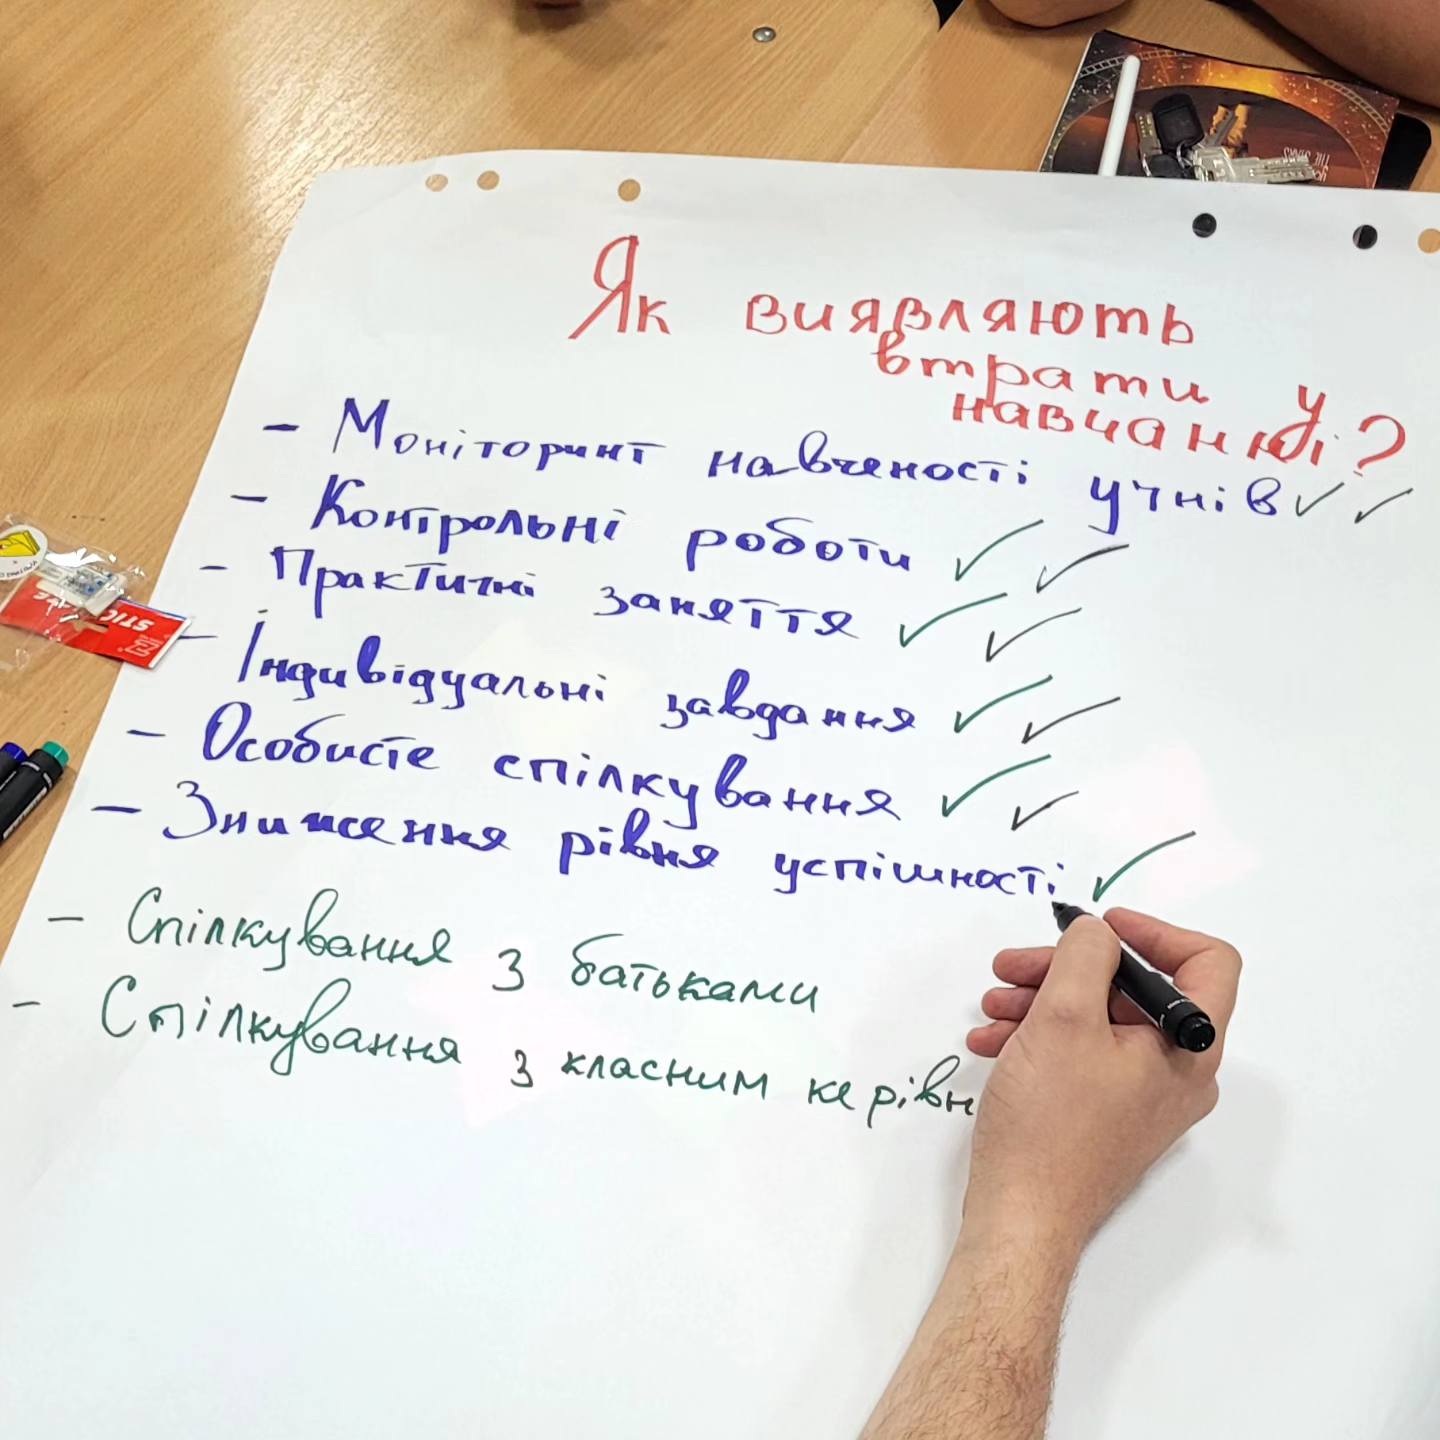 Як виявляють
втрати у
навчанні?
- Моніторинг навчености учнів ✓ ✓
- Контрольні роботи ✓ ✓
- Практичні заняття ✓ ✓
- Індивідуальні завдання ✓ ✓
- Особисте спілкування ✓ ✓
- Зниження рівня успішності ✓
- Спілкування з батьками
- Спілкування з класним керівн
THE STARS
STIC